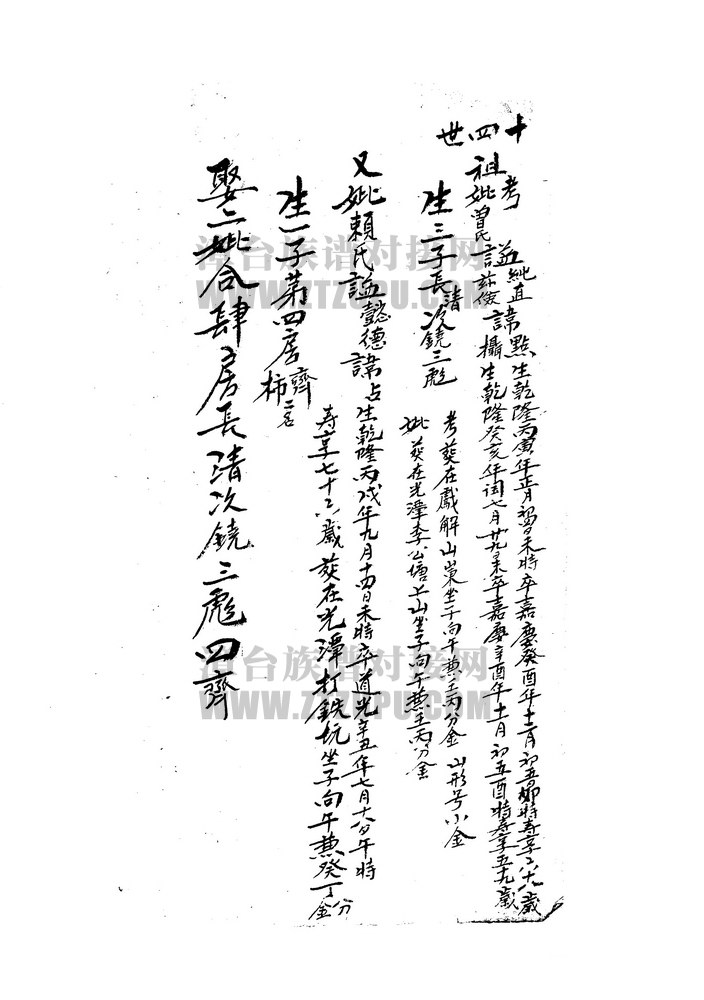 十四世
考 謚純直諱點生乾隆丙寅年正月初 日未時卒嘉慶癸酉年十二月初五卯時壽享六十八歲
祖妣曾氏謚 儉諱攝生乾隆癸亥年閏 月廿九 未卒嘉慶辛酉年十一月初五酉時壽享五十九歲
生三子長清次鏡三彪
考葵在戲解山崬坐子向午兼壬丙分金 山形号小金
妣葵在光潭李公塘上山坐子向午兼壬丙分金
又妣賴氏謚懿德諱占生乾隆丙戌年九月十四日未時卒道光辛丑年七月十八日午時
壽享七十六歲葵在光潭打鉄坑坐子向午兼癸丁分金
生一子第四房齊柿二名
娶二妣合肆房長清次鏡三彪四齊
漳台族谱对接网
WWW.ZTZUPU.COM
漳台族谱对接网
WWW.ZTZUPU.COM